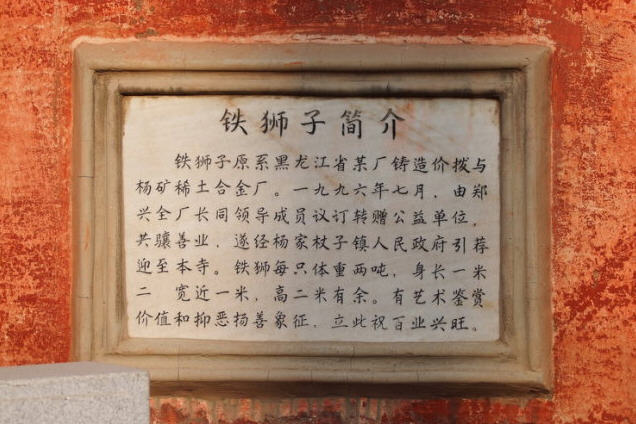 铁狮子简介
铁狮子原系黑龙江省某厂铸造价拨与
杨矿稀土合金厂。一九九六年七月，由郑
兴全厂长同领导成员议订转赠公益单位，
共骧善业，遂经杨家杖子镇人民政府引荐
迎至本寺。铁狮每只体重两吨，身长一米
二 宽近一米，高二米有余。有艺术鉴赏
价值和抑恶扬善象征，立此祝百业兴旺。